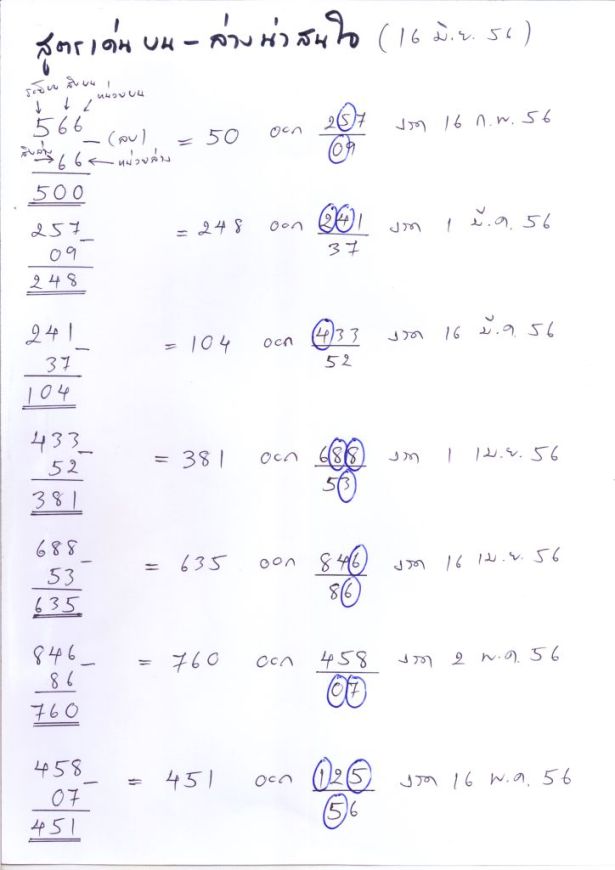 สูตรเด่น บน - ล่าง น่าสนใจ (16 มิ.ย. 56)
ร้อยบน สิบบน หน่วยบน
566 - (ลบ) = 50 ออก 257 งวด 16 ก.พ. 56
สิบล่าง 66 หน่วยล่าง 09
500
257 - = 248 ออก 241 งวด 1 มี.ค. 56
09 37
248
241 - = 104 ออก 433 งวด 16 มี.ค. 56
37 52
104
433 - = 381 ออก 688 งวด 1 เม.ย. 56
52 53
381
688 - = 635 ออก 846 งวด 16 เม.ย. 56
53 86
635
846 - = 760 ออก 458 งวด 2 พ.ค. 56
86 07
760
458 - = 451 ออก 125 งวด 16 พ.ค. 56
07 56
451